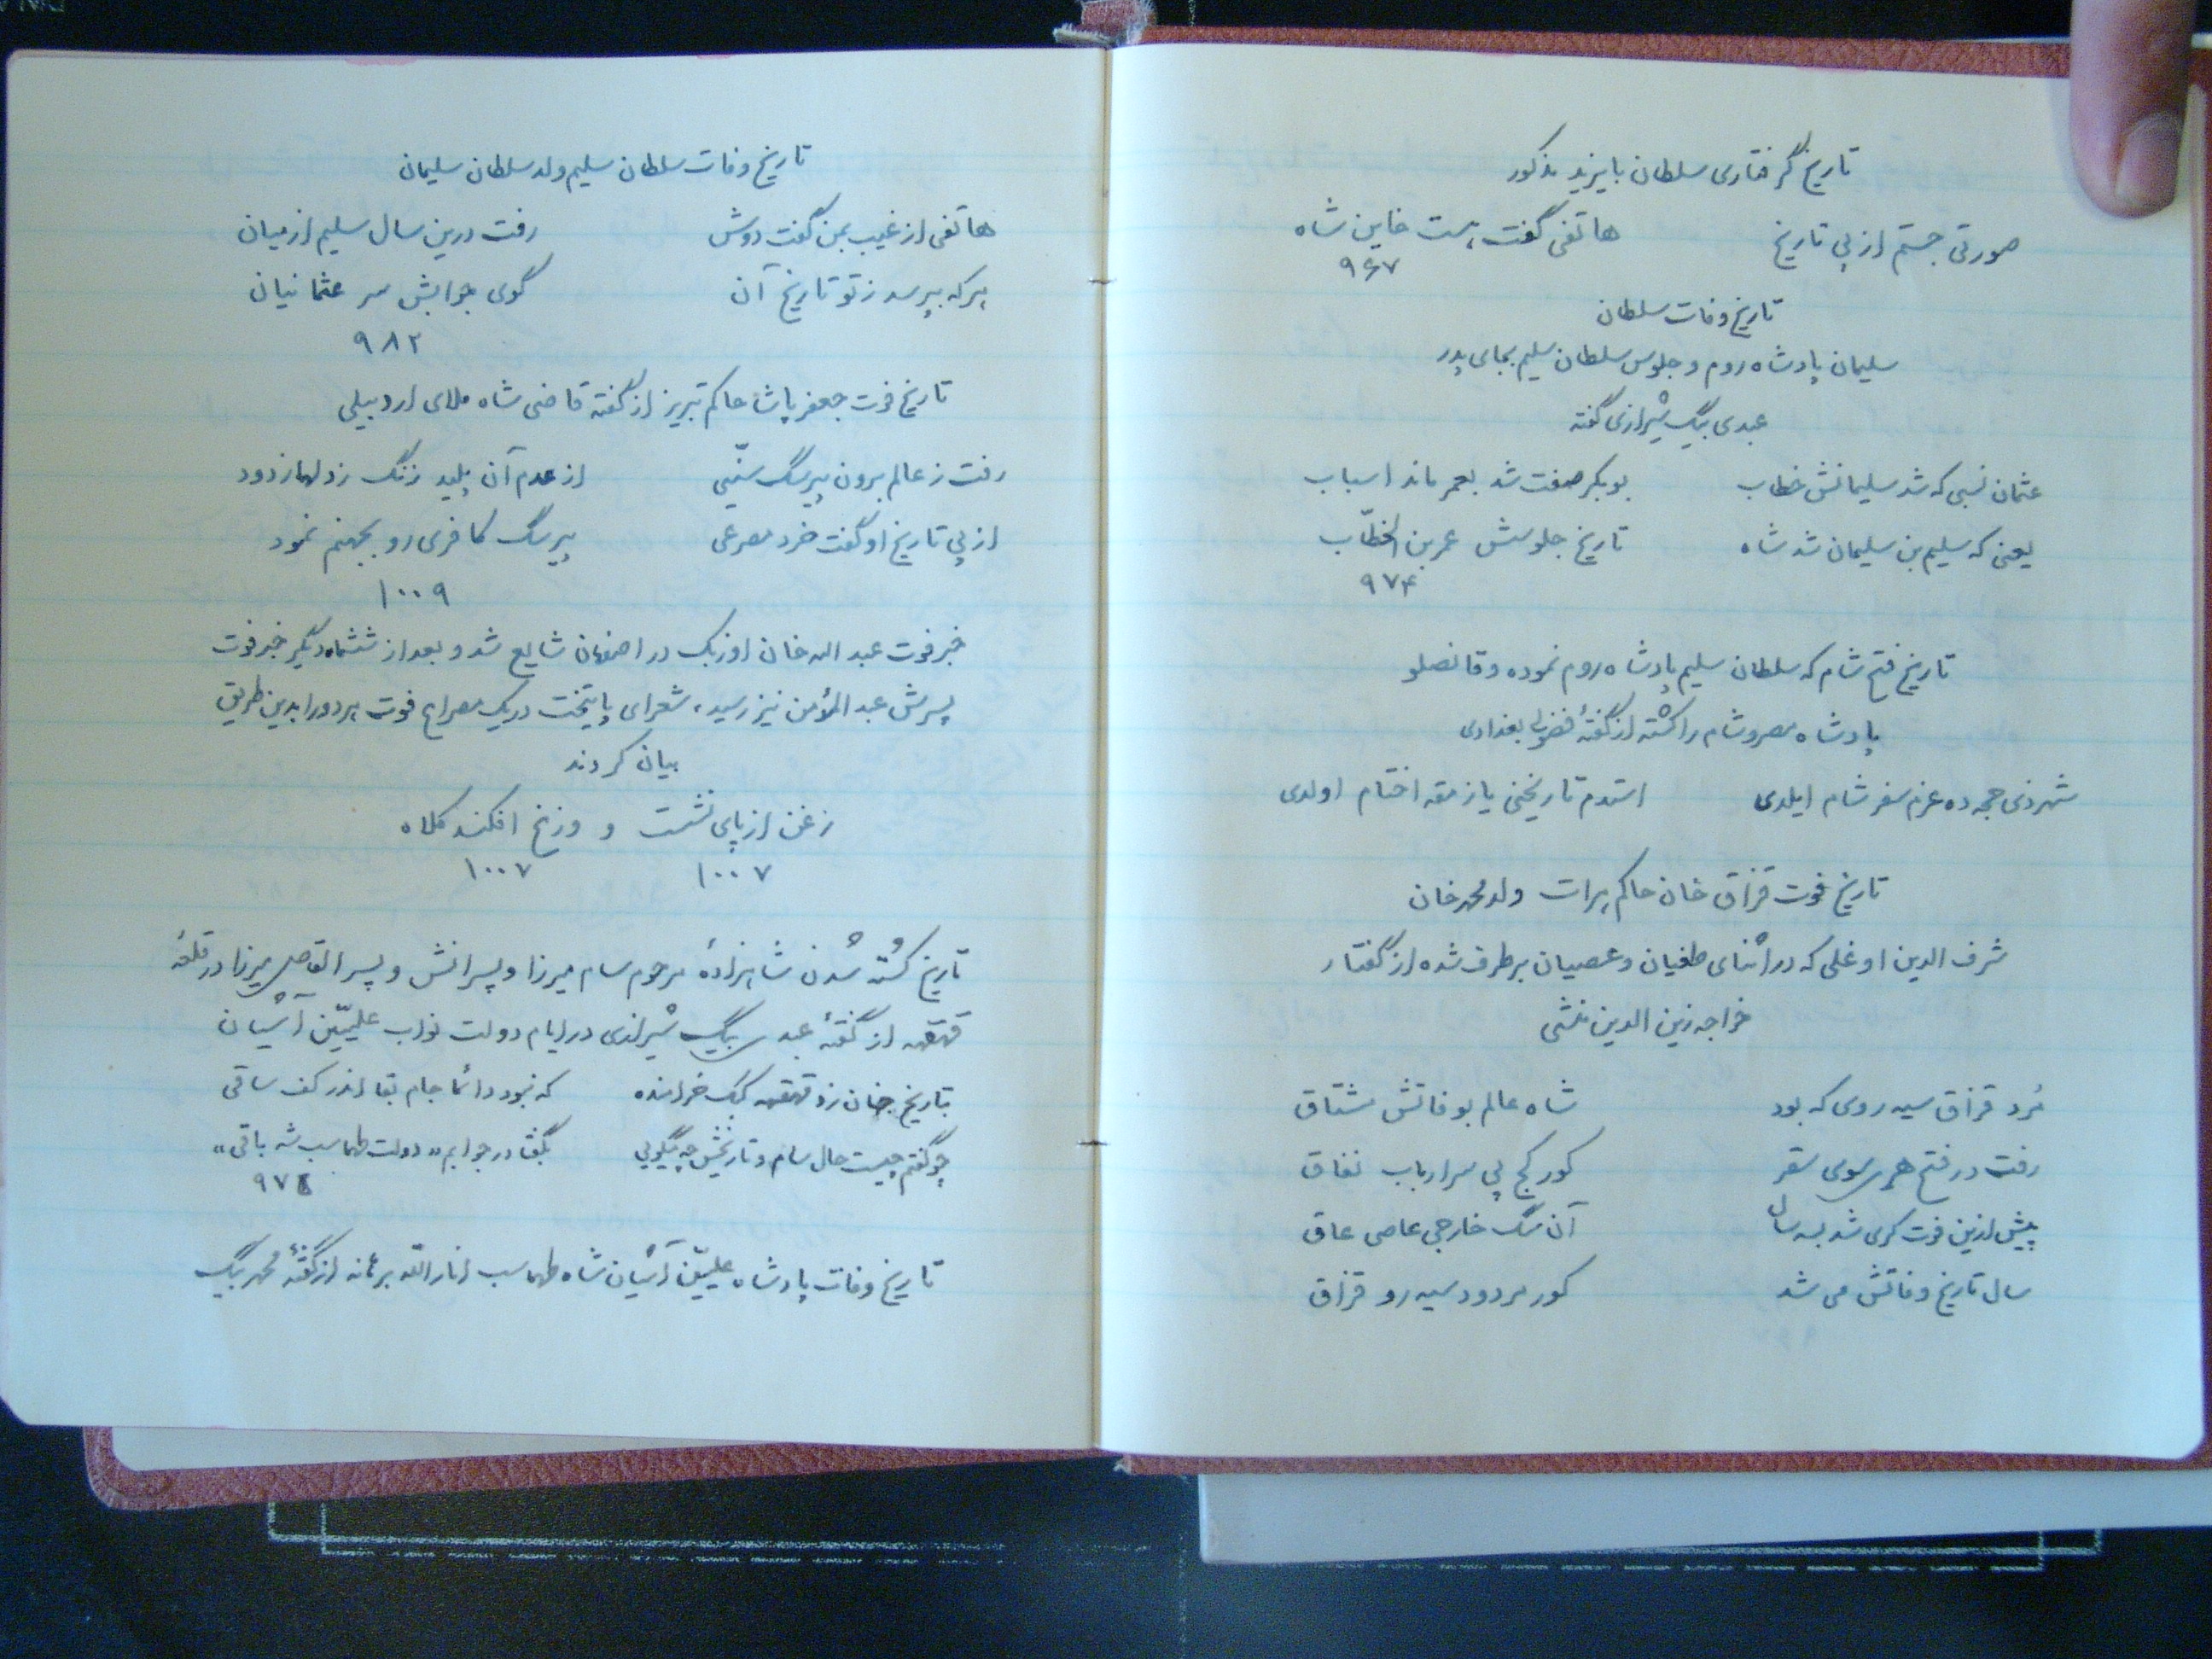 تاریخ گرفتاری سلطان بایزید مذکور
صورتی جستم از پی تاریخ هاتفی گفت هست خاین شاه
۹۶۷
تاریخ وفات سلطان
سلیمان پادشاه روم و جلوس سلطان سلیم بجای پدر
عبدی بیگ شیرازی گفته
عثمان نسبی که شد سلیمانش خطاب بوبکر صفت شد بعمر ماند اسباب
یعنی که سلیم بن سلیمان شد شاه تاریخ جلوسش عمر بن الخطّاب
۹۷۴
تاریخ فتح شام که سلطان سلیم پادشاه روم نموده و قانصلو
پادشاه مصر و شام را کشته از گفتهٔ فضولی بغدادی
شهر ذی حجه ده عزم سفر شام ایلدی استدم تاریخنی یازمقه اختام اولدی
تاریخ فوت قزاق خان حاکم هرات ولد محمد خان
شرف الدین اوغلی که در اثنای طغیان و عصیان برطرف شده از گفتار
خواجه زین الدین منشی
مُرد قزاق سیه روی که بود شاه عالم بوفاتش مشتاق
رفت در فتح هری سوی سقر کور کج پی سر ارباب نفاق
پیش ازین فوت کری شد بسه سال آن سگ خارجی عاصی عاق
سال تاریخ وفاتش می شد کور مردود سیه رو قزاق
تاریخ وفات سلطان سلیم ولد سلطان سلیمان
هاتفی از غیب بمن گفت دوش رفت درین سال سلیم از میان
هر که بپرسد ز تو تاریخ آن گوی جوابش سر عثمانیان
۹۸۲
تاریخ فوت جعفر پاشا حاکم تبریز از گفته قاضی شاه ملای اردبیلی
رفت ز عالم برون پیر سگ سنّیی از عدم آن پلید زنگ ز دلها زدود
از پی تاریخ او گفت خرد مصرعی پیر سگ کافری رو بجهنم نمود
۱۰۰۹
خبر فوت عبد الله خان اوزبک در اصفهان شایع شد و بعد از ششماه دیگر خبر فوت
پسرش عبد المؤمن نیز رسید، شعرای پایتخت در یک مصراع فوت هر دو را بدین طریق
بیان کردند
زغن از پای نشست و وزغ افکند کلاه
۱۰۰۷ ۱۰۰۷
تاریخ کشته شدن شاهزادهٔ مرحوم سام میرزا و پسرانش و پسر القاص میرزا در قلعهٔ
قهقهه از گفتهٔ عبدی بیگ شیرازی در ایام دولت نواب علیّین آشیان
بتاریخ چنان زد قهقهه کبک خرامنده که نبود دائما جام بقا اندر کف ساقی
چو گفتم چیست حال سام و تاریخش چه میگویی بگفتا در جوابم «دولت طهماسب شه باقی»
۹۷۴
تاریخ وفات پادشاه علیّین آشیان شاه طهماسب انار الله برهانه از گفتهٔ محمد بیگ